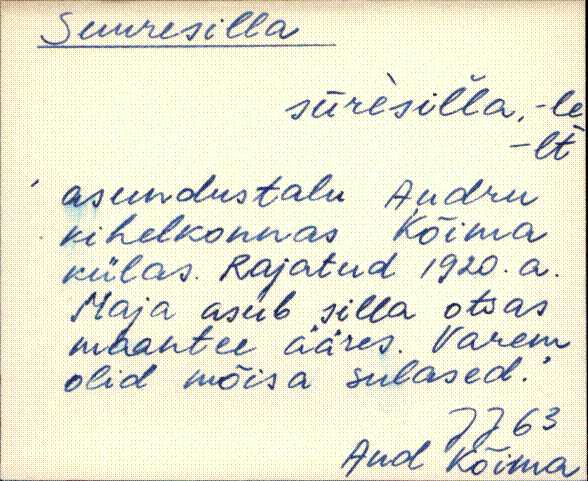 Suuresilla
sūrèsilla, -le
-lt
' asundustalu Audru
kihelkonnas Kõima
külas. Rajatud 1920. a.
Maja asub silla otsas
maantee ääres. Varem
olid mõisa sulased.'
JJ 63
Aud Kõima